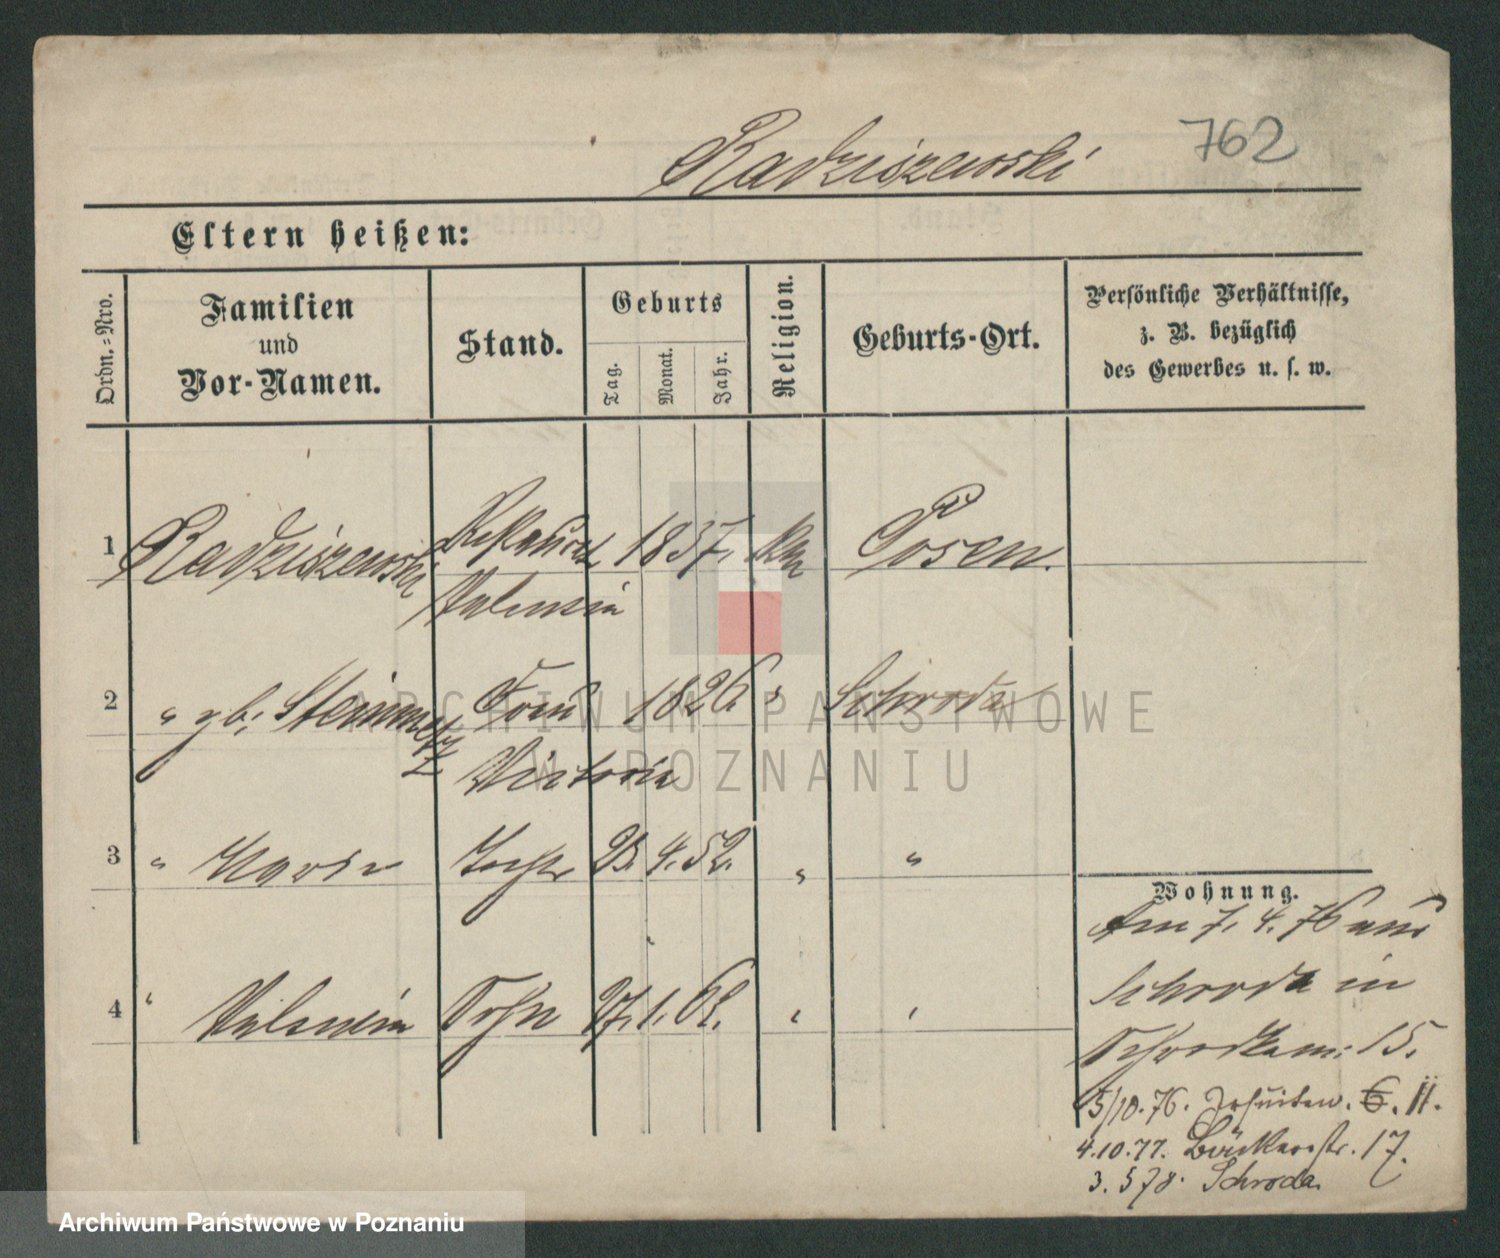 Radziszewski 762
Eltern heißen:
Ordn.=Nro. Familien und Vor-Namen. Stand. Geburts Tag. Monat. Jahr. Religion. Geburts-Ort. Persönliche Verhältnisse, z. B. bezüglich des Gewerbes u. s. w.
1 Radziszewski 1837. Posen.
Valentin
2 " gb. Steinmetz Frau 1826. " Schroda
Victoria
3 " Maria 23. 4. 52. " "
4 " Valentin Sohn 27. 1. 62. " "
Wohnung.
Am 7. 4. 76 aus
Schroda in
15.
5/10. 76. Jesuiten. 6. II.
4. 10. 77. Bäckerstr. 17.
3. 5 78. Schroda
ARCHIWUM PAŃSTWOWE
W POZNANIU
Archiwum Państwowe w Poznaniu